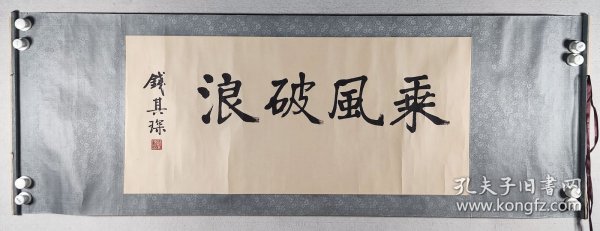 乘風破浪
錢其琛
孔夫子旧書网
www.kongfz.com